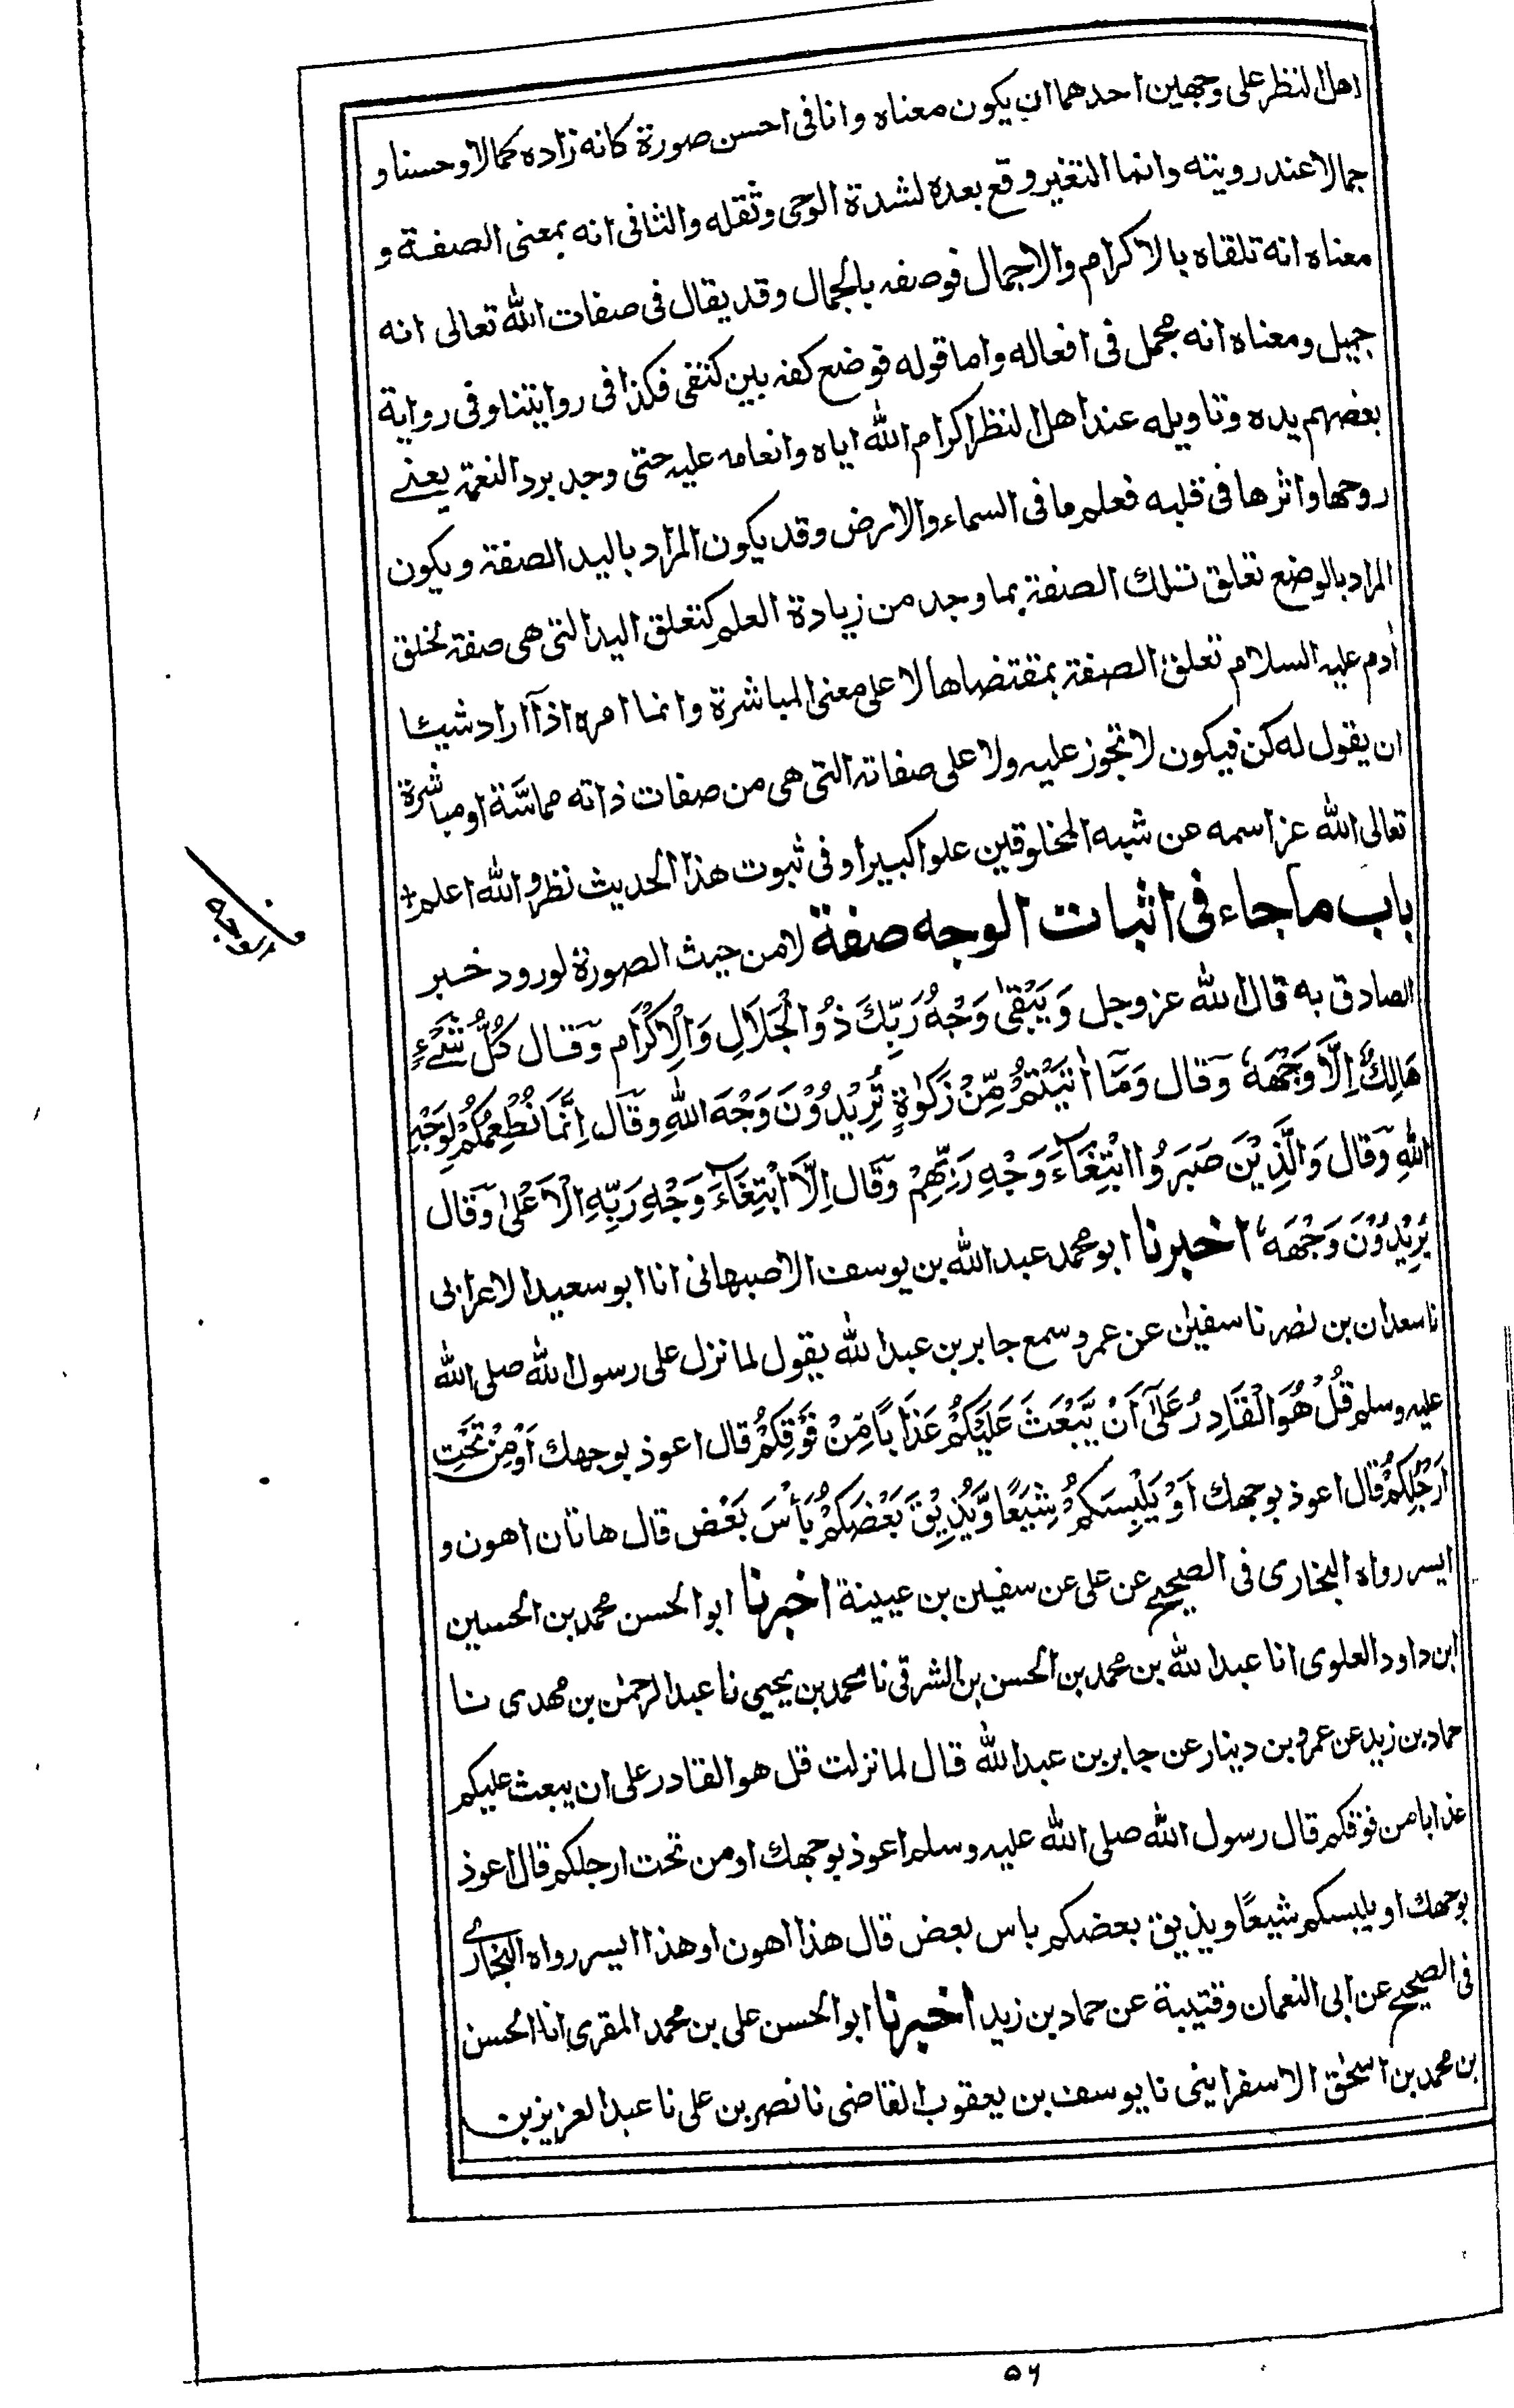 اهل النظر على وجهين احدهما ان يكون معناه وانا فى احسن صورة كانه زاده كمالا وحسنا و
جمالا عند رويته وانما التغير وقع بعده لشدة الوحى وثقله والثانى انه بمعنى الصفة و
معناه انه تلقاه بالاكرام والاجمال فوصفه بالجمال وقد يقال فى صفات الله تعالى انه
جميل ومعناه انه مجمل فى افعاله واما قوله فوضع كفه بين كتفى فكذا فى روايتنا وفى رواية
بعضهم يده وتاويله عند اهل النظر اكرام الله اياه وانعامه عليه حتى وجد برد النعمة يعنے
روحها واثرها فى قلبه فعلم ما فى السماء والارض وقد يكون المراد باليد الصفة ويكون
المراد بالوضع تعلق تلك الصفة بما وجد من زيادة العلم كتعلق اليد التى هى صفة بخلق
اٰدم عليه السلام تعلق الصفة بمقتضاها لا على معنى المباشرة وانما امره اذآ اراد شيئا
ان يقول له كن فيكون لا تجوز عليه ولا على صفاته التى هى من صفات ذاته مماسّة او مباشرة
تعالى الله عز اسمه عن شبه المخلوقين علوا كبيرا وفى ثبوت هذا الحديث نظر والله اعلم +
باب ما جاء فى اثبات الوجه صفة لا من حيث الصورة لورود خبر
الصادق به قال الله عز وجل وَيَبْقىٰ وَجْهُ رَبِّكَ ذُو الْجَلَالِ وَالْاِكْرَامِ وَقَال كُلُّ شَىْءٍ
هَالِكٌ اِلَّا وَجْهَهٗ وَقال وَمَآ اٰتَيْتُمْ مِّنْ زَكٰوةٍ تُرِيْدُوْنَ وَجْهَ اللهِ وقال اِنَّمَا نُطْعِمُكُمْ لِوَجْهِ
اللهِ وَقال وَالَّذِيْنَ صَبَرُوا ابْتِغَآءَ وَجْهِ رَبِّهِمْ وَقال اِلَّا ابْتِغَآءَ وَجْهِ رَبِّهِ الْاَعْلىٰ وَقال
يُرِيْدُوْنَ وَجْهَهٗ اخبرنا ابو محمد عبد الله بن يوسف الاصبهانى انا ابو سعيد الاعرابى
نا سعدان بن نصر نا سفيٰن عن عمرو سمع جابر بن عبد الله يقول لما نزل على رسول الله صلى الله
عليه وسلم قُلْ هُوَ الْقَادِرُ عَلٰٓى اَنْ يَّبْعَثَ عَلَيْكُمْ عَذَابًا مِّنْ فَوْقِكُمْ قال اعوذ بوجهك اَوْ مِنْ تَحْتِ
اَرْجُلِكُمْ قال اعوذ بوجهك اَوْ يَلْبِسَكُمْ شِيَعًا وَّيُذِيْقَ بَعْضَكُمْ بَأْسَ بَعْض قال هاتان اهون و
ايسر رواه البخارى فى الصحيح عن على عن سفيٰن بن عيينة اخبرنا ابو الحسن محمد بن الحسين
ابن داود العلوى انا عبد الله بن محمد بن الحسن بن الشرقى نا محمد بن يحيى نا عبد الرحمٰن بن مهدى نا
حماد بن زيد عن عمرو بن دينار عن جابر بن عبد الله قال لما نزلت قل هو القادر على ان يبعث عليكم
عذابا من فوقكم قال رسول الله صلى الله عليه وسلم اعوذ بوجهك او من تحت ارجلكم قال اعوذ
بوجهك او يلبسكم شيعًا ويذيق بعضكم باس بعض قال هذا اهون او هذا ايسر رواه البخارى
فى الصحيح عن ابى النعمان وقتيبة عن حماد بن زيد اخبرنا ابو الحسن على بن محمد المقرى انا الحسن
بن محمد بن اسحٰق الاسفراينى نا يوسف بن يعقوب القاضى نا نصر بن على نا عبد العزيز بن
۵۶